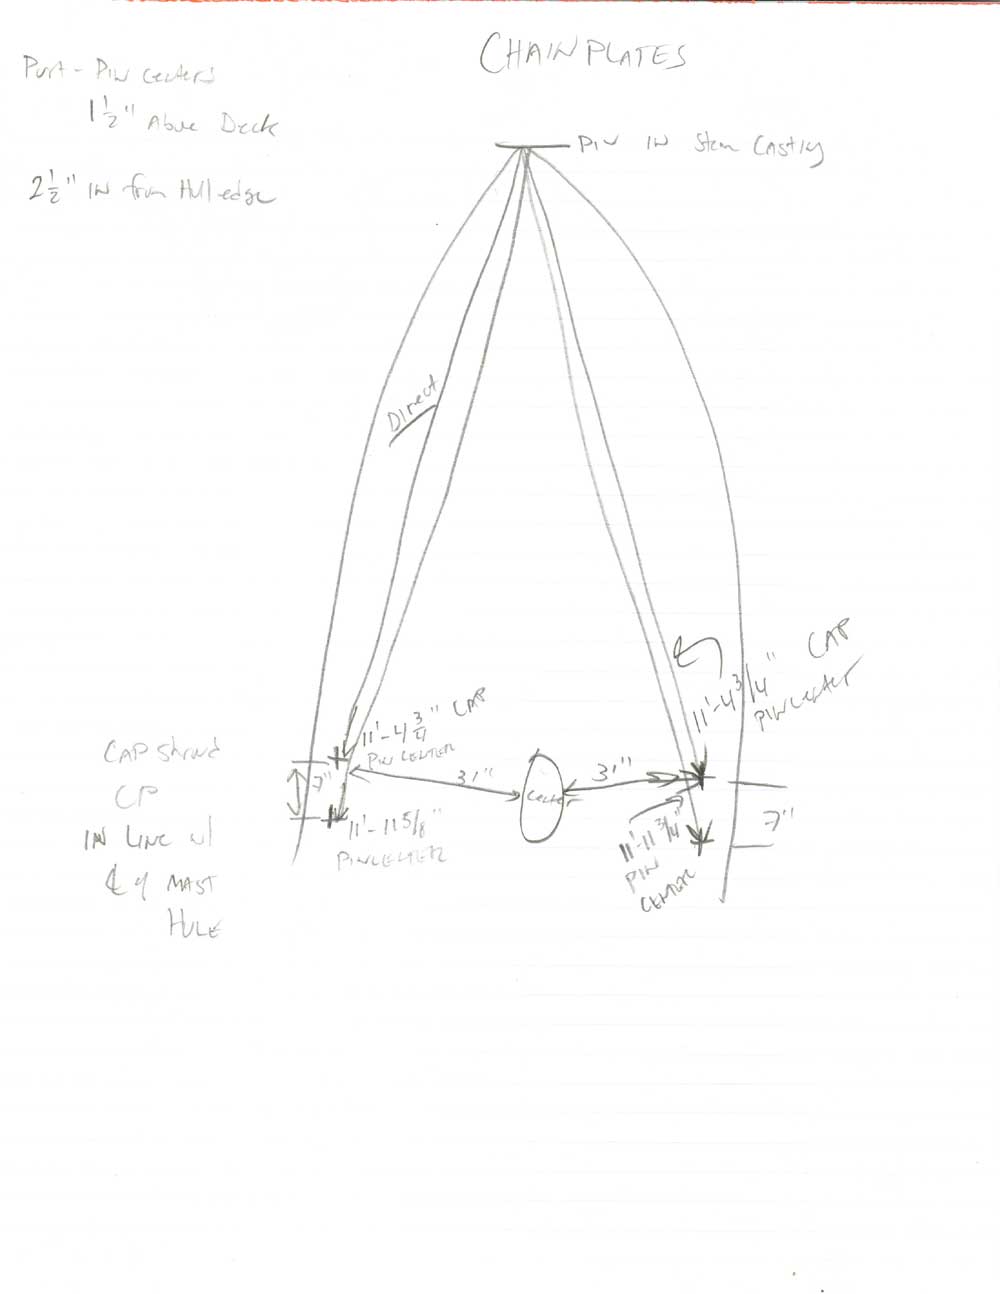 CHAINPLATES
Port - Pin Centers
1 1/2" Above Deck
2 1/2" IN from Hull edge
PIN IN Stem Casting
Direct
11'-4 3/4" CAP
PIN CENTER
11'-4 3/4" CAP
PINCENTER
CAP Shroud
CP
IN LINE w/
℄ of MAST
HOLE
7"
3'"
Center
3'"
7"
11'-11 5/8"
PINCENTER
11'-11 3/4"
PIN
CENTER